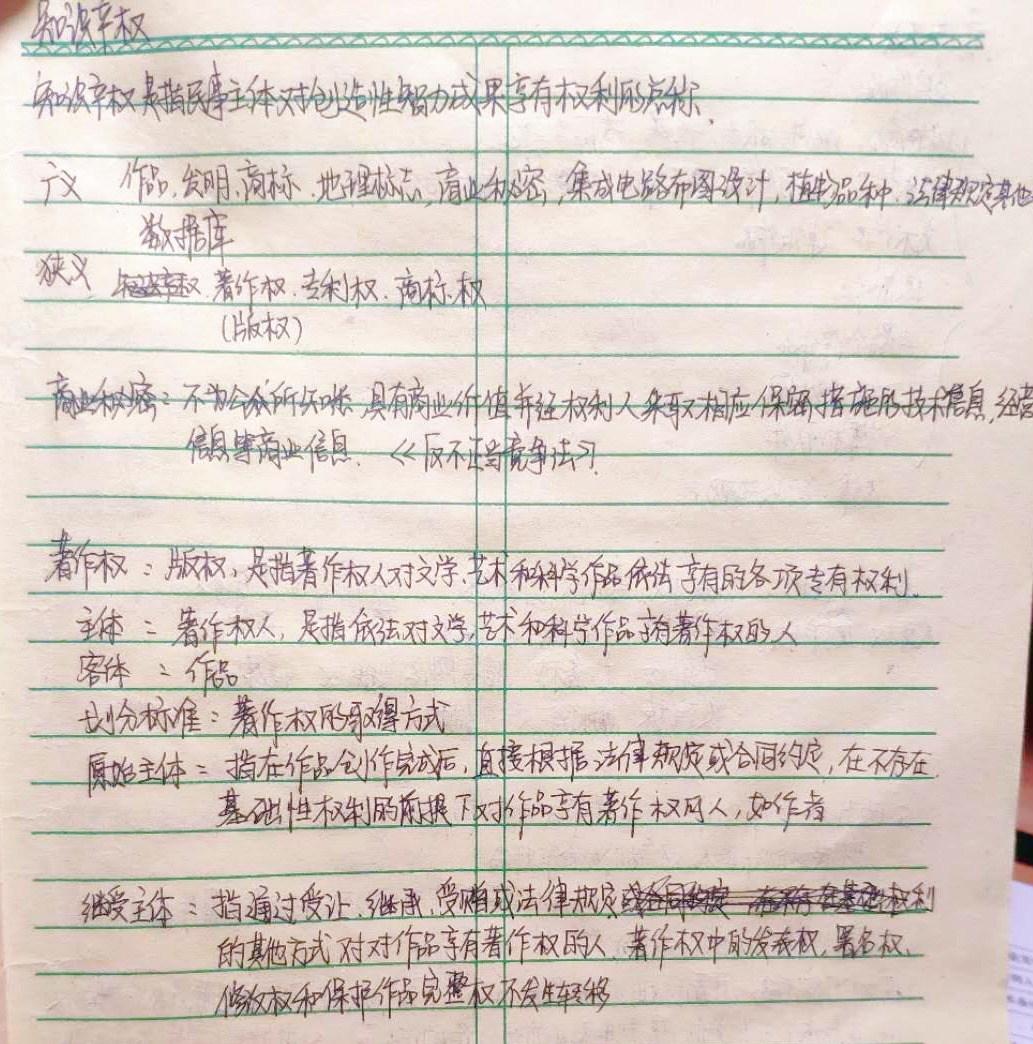 知识产权
知识产权是指民事主体对创造性智力成果享有权利的总称.
广义 作品、发明、商标、地理标志、商业秘密,集成电路布图设计,植物品种、法律规定其他
数据库
狭义 著作权、专利权、商标权
(版权)
商业秘密:不为公众所知悉、具有商业价值并经权利人采取相应保密措施的技术信息,经营
信息等商业信息. 《反不正当竞争法》.
著作权:版权,是指著作权人对文学、艺术和科学作品依法享有的各项专有权利.
主体:著作权人,是指依法对文学、艺术和科学作品享有著作权的人
客体:作品
划分标准:著作权的取得方式
原始主体:指在作品创作完成后,直接根据法律规定或合同约定,在不存在
基础性权利的前提下对作品享有著作权的人,如作者
继受主体:指通过受让、继承、受赠或法律规定
的其他方式对对作品享有著作权的人.著作权中的发表权,署名权、
修改权和保护作品完整权不发生转移